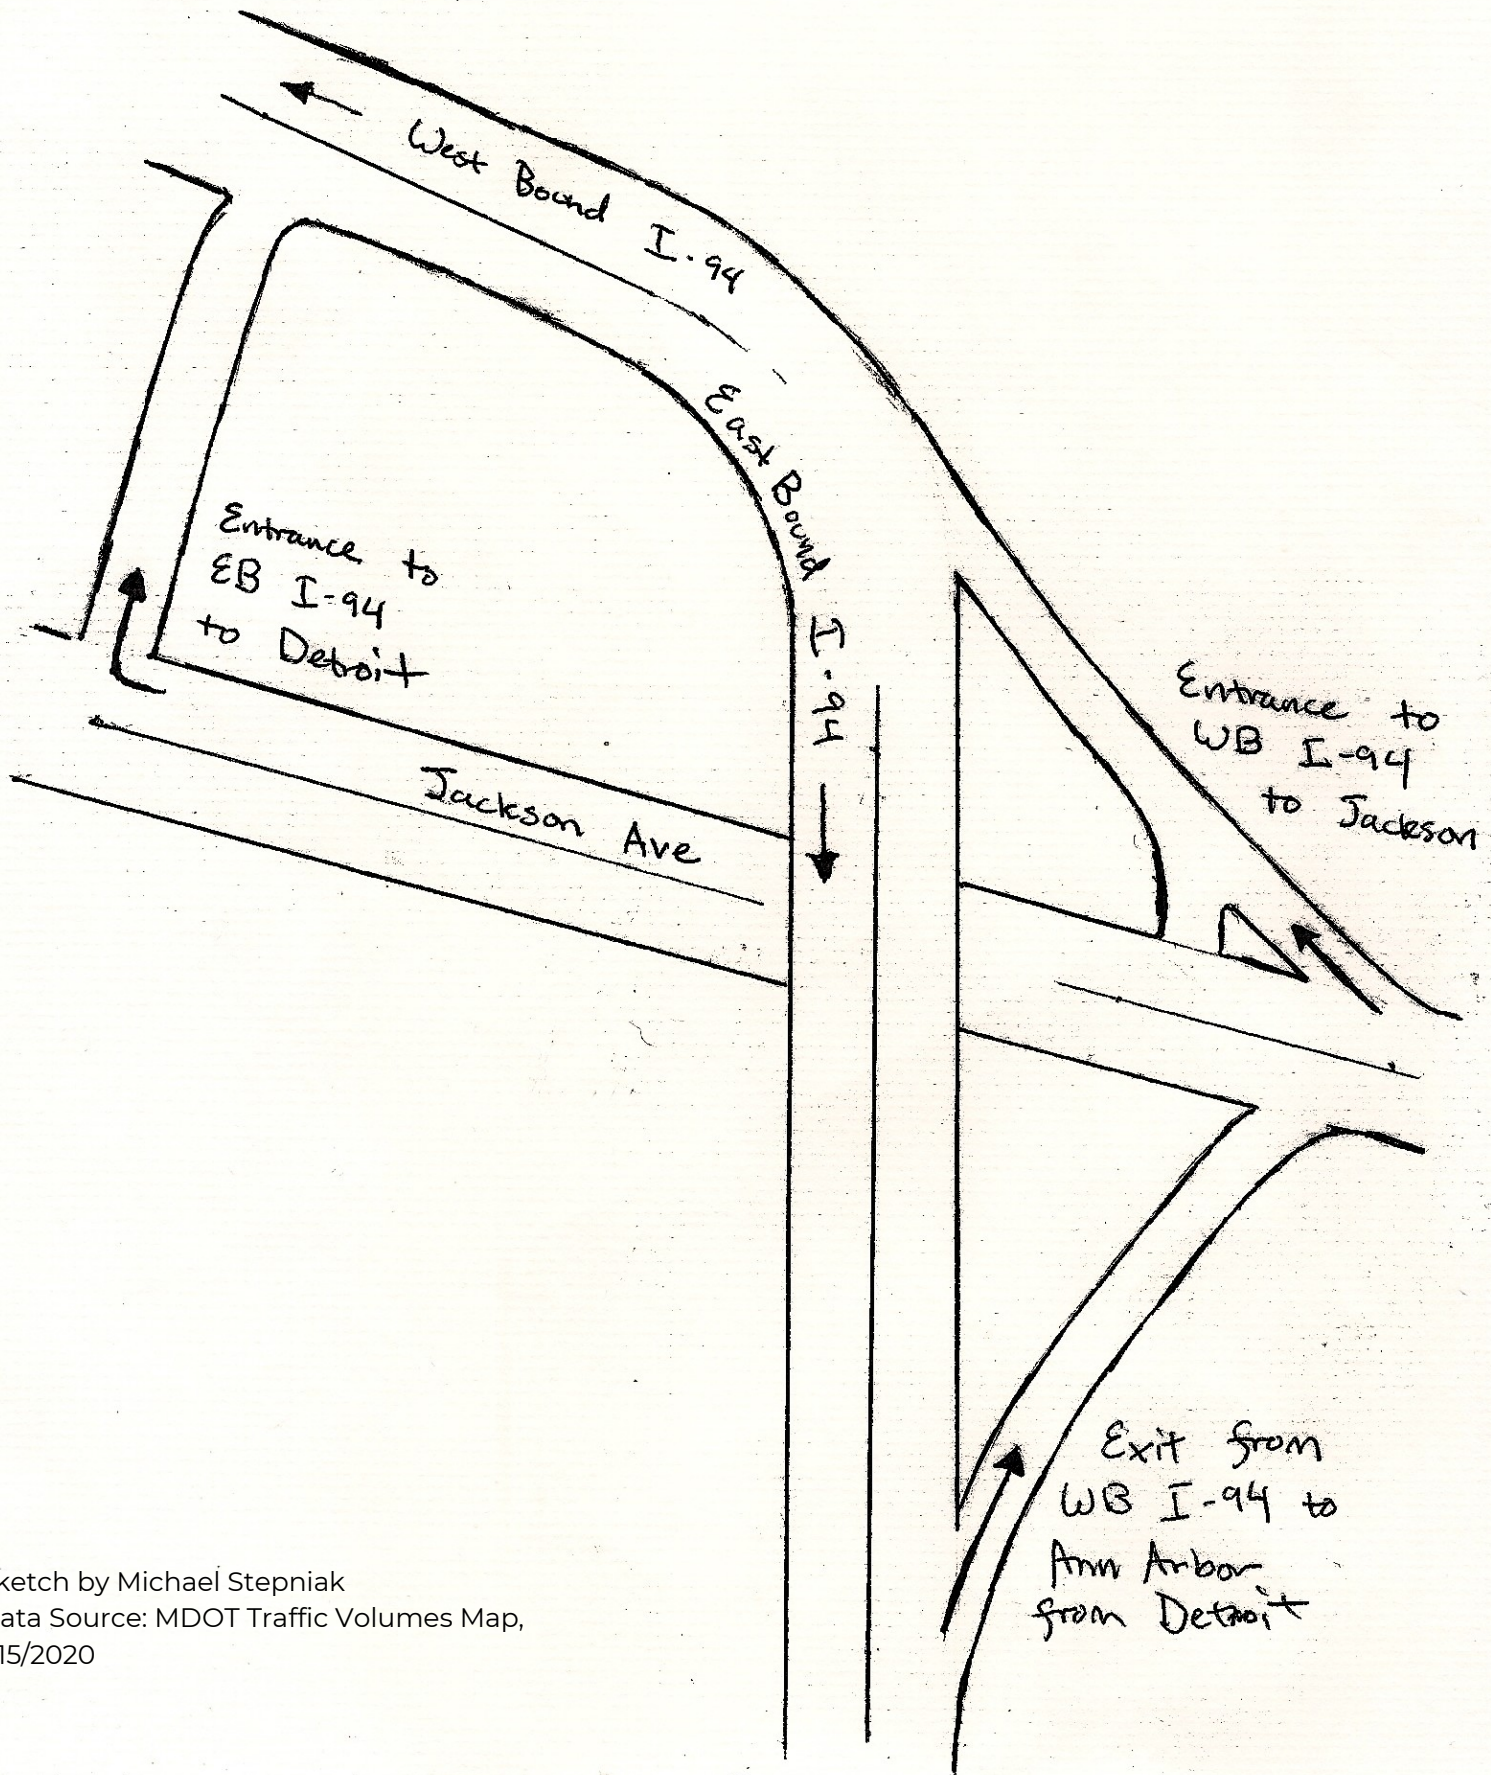 West Bound I-94
East Bound I-94
Entrance to
EB I-94
to Detroit
Entrance to
WB I-94
to Jackson
Jackson Ave
Exit from
WB I-94 to
Ann Arbor
from Detroit
ketch by Michael Stepniak
ata Source: MDOT Traffic Volumes Map,
15/2020